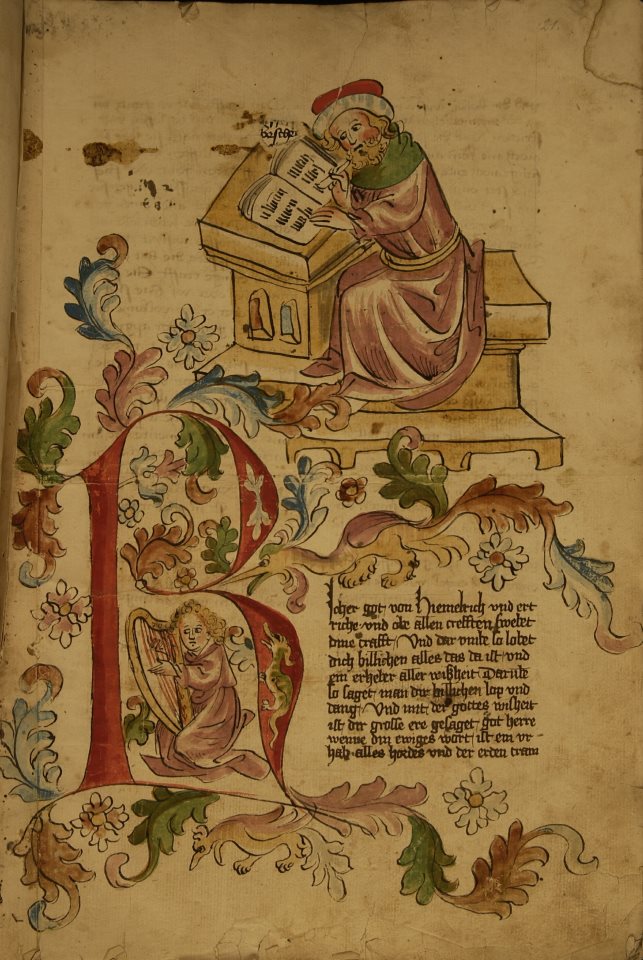 21.
Richer got von Hiemelrich vnd ert
riche vnd obe allen crefften swebet
dine crafft / Vnd dar vmbe so lobet
dich billichen alles das da ist vnd
ein erheber aller wißheit Dar vmbe
so saget man dir billichen lop vnd
dang / Vnd mit der gottes wisheit
ist dir grosse ere gesaget got herre
wenne din ewiges wort ist ein vr-
hab alles hordes vnd der erden tram